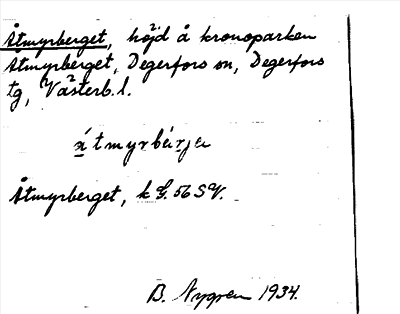 Åtmyrberget, höjd å kronoparken
Åtmyrberget, Degerfors sn, Degerfors
tg, Västerb. l.
Åtmyrberget, k G. 56 SV.
B. Nygren 1934.